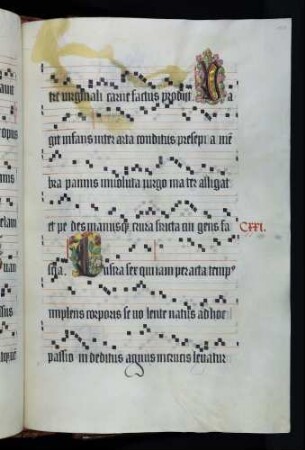 tre virginali carne factus prodijt V a
git infans inter arta conditus presepia mē
bra pannis inuoluta virgo mater alligat
et pedes manusq̄ crura stricta cingens fa
CXXI.
scia. Lustra sex qui iam peracta tempꝰ
implens corporis se volente natus ad hoc
passioni deditus agnus in crucis leuatur